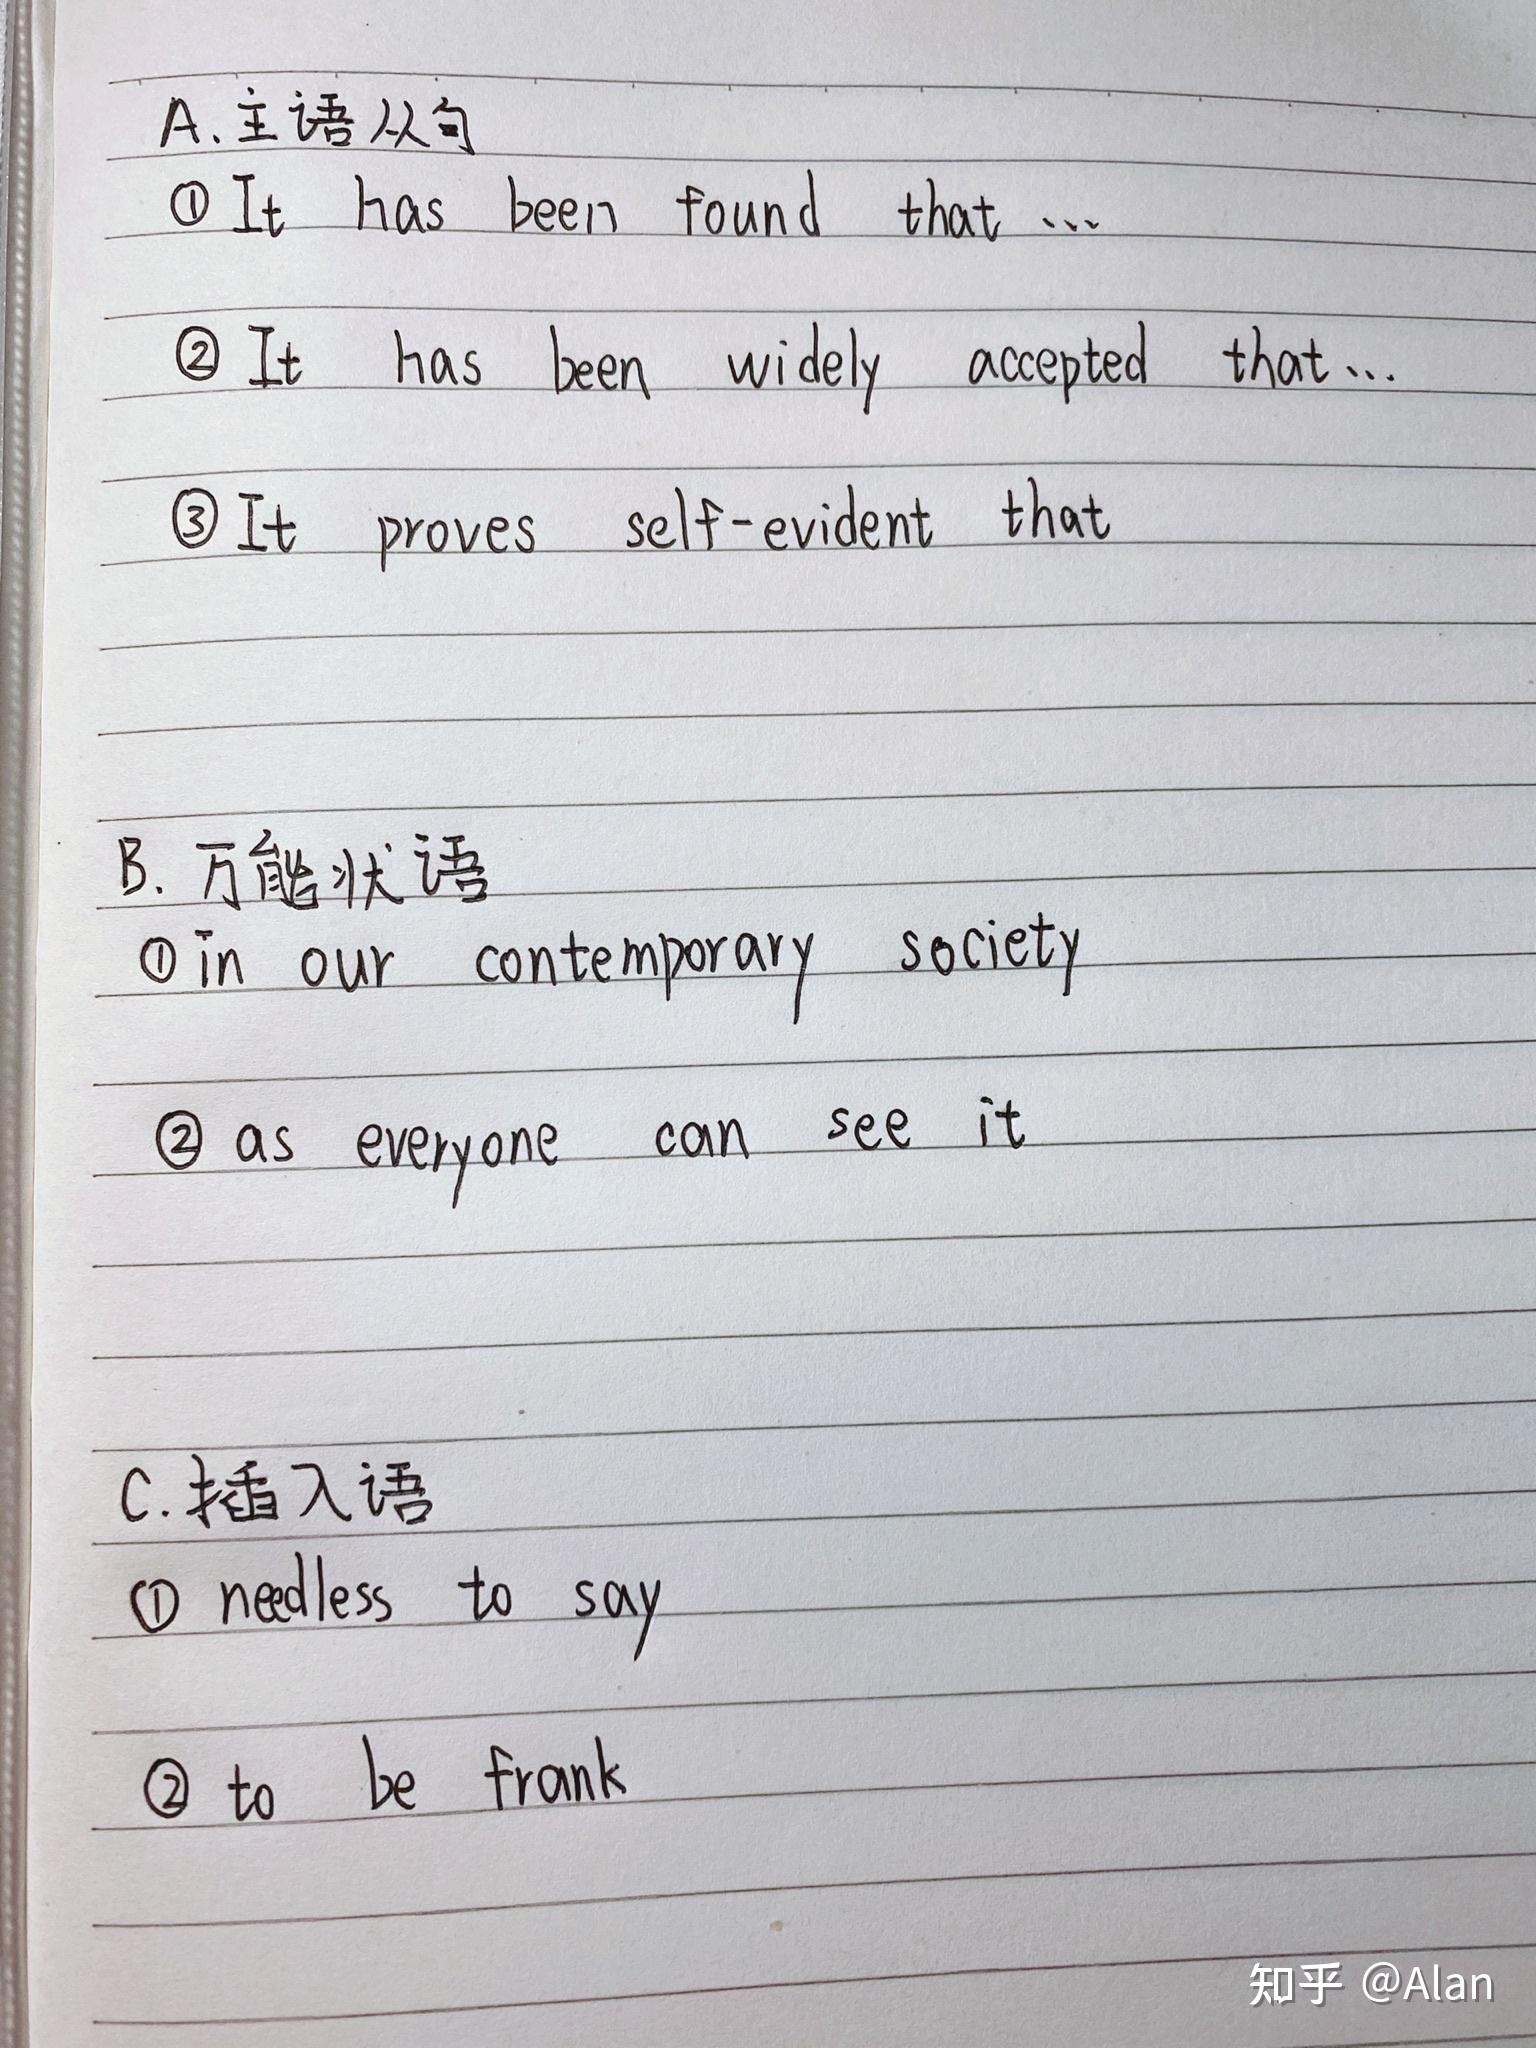 A. 主语从句
① It has been found that ...
② It has been widely accepted that ...
③ It proves self-evident that
B. 万能状语
① in our contemporary society
② as everyone can see it
C. 插入语
① needless to say
② to be frank
知乎 @Alan